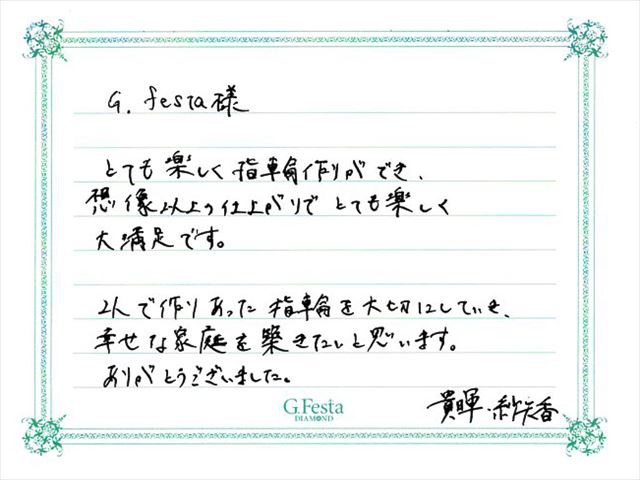 G. festa様
とても楽しく指輪作りができ、
想像以上の仕上がりでとても楽しく
大満足です。
2人で作りあった指輪を大切にしていき、
幸せな家庭を築きたいと思います。
ありがとうございました。
G.Festa
DIAMOND
貴暉・紗矢香